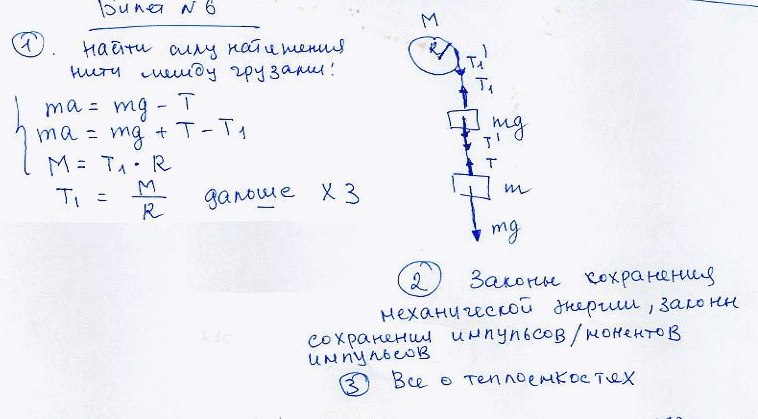 Билет № 6
① . Найти силу натяжения
нити между грузами!
ma = mg - T
ma = mg + T - T₁
M = T₁ · R
T₁ = M/R дальше X3
M
R
T₁'
T₁
mg
T'
T
m
mg
② Законы сохранения
механической энергии, законы
сохранения импульсов/моментов
импульсов
③ Все о теплоемкостях